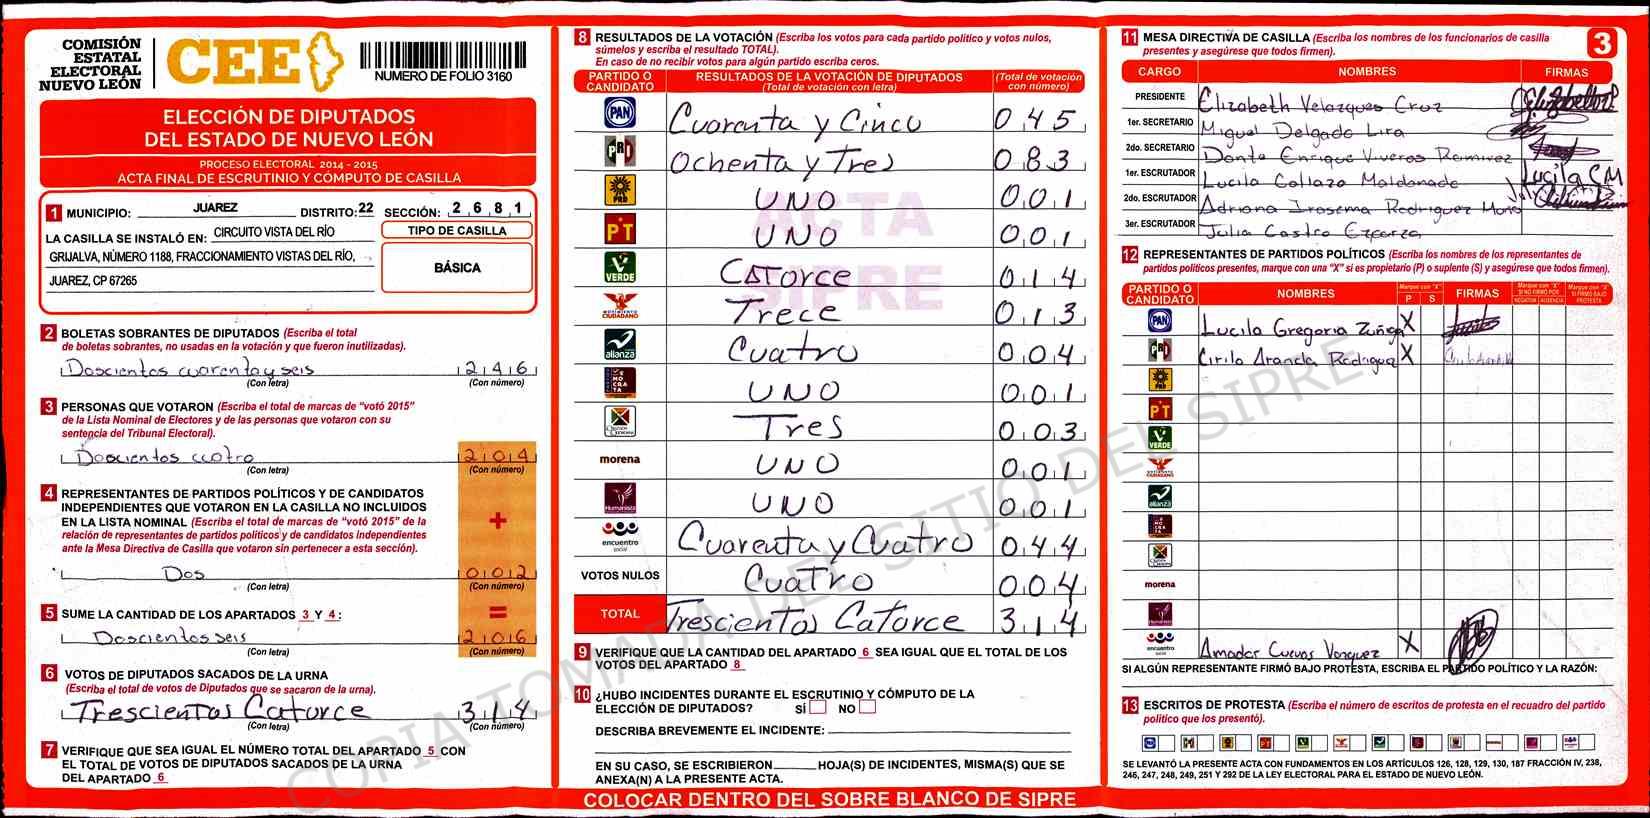 COMISIÓN
ESTATAL
ELECTORAL
NUEVO LEÓN
CEE
NUMERO DE FOLIO 3160
ELECCIÓN DE DIPUTADOS
DEL ESTADO DE NUEVO LEÓN
PROCESO ELECTORAL 2014 - 2015
ACTA FINAL DE ESCRUTINIO Y CÓMPUTO DE CASILLA
1 MUNICIPIO: JUAREZ DISTRITO: 22 SECCIÓN: 2 6 8 1
LA CASILLA SE INSTALÓ EN: CIRCUITO VISTA DEL RÍO
GRIJALVA, NÚMERO 1188, FRACCIONAMIENTO VISTAS DEL RÍO,
JUAREZ, CP 67265
TIPO DE CASILLA
BÁSICA
2 BOLETAS SOBRANTES DE DIPUTADOS (Escriba el total
de boletas sobrantes, no usadas en la votación y que fueron inutilizadas).
Doscientos cuarenta y seis 2 4 6
(Con letra) (Con número)
3 PERSONAS QUE VOTARON (Escriba el total de marcas de "votó 2015"
de la Lista Nominal de Electores y de las personas que votaron con su
sentencia del Tribunal Electoral).
Doscientos cuatro 2 0 4
(Con letra) (Con número)
4 REPRESENTANTES DE PARTIDOS POLÍTICOS Y DE CANDIDATOS
INDEPENDIENTES QUE VOTARON EN LA CASILLA NO INCLUIDOS
EN LA LISTA NOMINAL (Escriba el total de marcas de "votó 2015" de la
relación de representantes de partidos políticos y de candidatos independientes
ante la Mesa Directiva de Casilla que votaron sin pertenecer a esta sección).
+
Dos 0 0 2
(Con letra) (Con número)
5 SUME LA CANTIDAD DE LOS APARTADOS 3 Y 4: =
Doscientos seis 2 0 6
(Con letra) (Con número)
6 VOTOS DE DIPUTADOS SACADOS DE LA URNA
(Escriba el total de votos de Diputados que se sacaron de la urna).
Trescientos Catorce 3 1 4
(Con letra) (Con número)
7 VERIFIQUE QUE SEA IGUAL EL NÚMERO TOTAL DEL APARTADO 5 CON
EL TOTAL DE VOTOS DE DIPUTADOS SACADOS DE LA URNA
DEL APARTADO 6
8 RESULTADOS DE LA VOTACIÓN (Escriba los votos para cada partido político y votos nulos,
súmelos y escriba el resultado TOTAL).
En caso de no recibir votos para algún partido escriba ceros.
PARTIDO O CANDIDATO RESULTADOS DE LA VOTACIÓN DE DIPUTADOS (Total de votación con letra) (Total de votación con número)
PAN Cuarenta y Cinco 0 4 5
PRI Ochenta y Tres 0 8 3
PRD UNO 0 0 1
PT UNO 0 0 1
VERDE Catorce 0 1 4
MOVIMIENTO CIUDADANO Trece 0 1 3
alianza Cuatro 0 0 4
UNO 0 0 1
Tres 0 0 3
morena UNO 0 0 1
Humanista UNO 0 0 1
encuentro social Cuarenta y Cuatro 0 4 4
VOTOS NULOS Cuatro 0 0 4
TOTAL Trescientos Catorce 3 1 4
ACTA
SIPRE
9 VERIFIQUE QUE LA CANTIDAD DEL APARTADO 6 SEA IGUAL QUE EL TOTAL DE LOS
VOTOS DEL APARTADO 8
10 ¿HUBO INCIDENTES DURANTE EL ESCRUTINIO Y CÓMPUTO DE LA
ELECCIÓN DE DIPUTADOS? SÍ NO
DESCRIBA BREVEMENTE EL INCIDENTE:
EN SU CASO, SE ESCRIBIERON HOJA(S) DE INCIDENTES, MISMA(S) QUE SE
ANEXA(N) A LA PRESENTE ACTA.
COLOCAR DENTRO DEL SOBRE BLANCO DE SIPRE
11 MESA DIRECTIVA DE CASILLA (Escriba los nombres de los funcionarios de casilla
presentes y asegúrese que todos firmen).
3
CARGO NOMBRES FIRMAS
PRESIDENTE Elizabeth Velazques Cruz
1er. SECRETARIO Miguel Delgado Lira
2do. SECRETARIO Dante Enrique Viveros Ramirez
1er. ESCRUTADOR Lucila Collazo Maldonado Lucila CM
2do. ESCRUTADOR Adriana Irasema Rodriguez
3er. ESCRUTADOR Julia Castro Ezparza
12 REPRESENTANTES DE PARTIDOS POLÍTICOS (Escriba los nombres de los representantes de
partidos políticos presentes, marque con una "X" si es propietario (P) o suplente (S) y asegúrese que todos firmen).
PARTIDO O CANDIDATO NOMBRES Marque con "X" P S FIRMAS Marque con "X" SI NO FIRMÓ POR NEGATIVA AUSENCIA Marque con "X" SI FIRMÓ BAJO PROTESTA
PAN Lucila Gregoria Zuñiga X
PRI Cirilo Aranda Rodriguez X
PRD
PT
VERDE
MOVIMIENTO CIUDADANO
alianza
morena
Humanista
encuentro social Amador Cuevas Vazquez X
SI ALGÚN REPRESENTANTE FIRMÓ BAJO PROTESTA, ESCRIBA EL PARTIDO POLÍTICO Y LA RAZÓN:
13 ESCRITOS DE PROTESTA (Escriba el número de escritos de protesta en el recuadro del partido
político que los presentó).
SE LEVANTÓ LA PRESENTE ACTA CON FUNDAMENTOS EN LOS ARTÍCULOS 126, 128, 129, 130, 187 FRACCIÓN IV, 238,
246, 247, 248, 249, 251 Y 292 DE LA LEY ELECTORAL PARA EL ESTADO DE NUEVO LEÓN.
COPIA TOMADA DEL SITIO DEL SIPRE